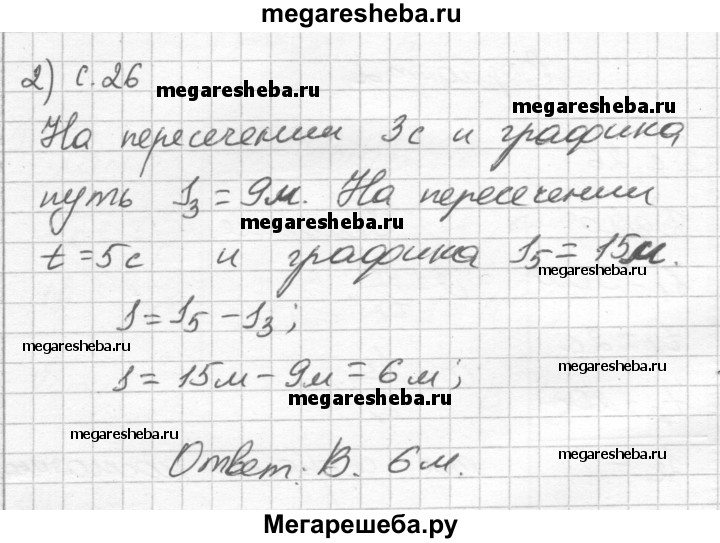 megaresheba.ru
2) с.26
megaresheba.ru
megaresheba.ru
На пересечении 3с и графика
путь S₃ = 9м. На пересечении
megaresheba.ru
t = 5с и графика S₅ = 15м.
megaresheba.ru
S = S₅ - S₃;
megaresheba.ru
S = 15м - 9м = 6м;
megaresheba.ru
megaresheba.ru
megaresheba.ru
Ответ: В. 6м.
megaresheba.ru
Мегарешеба.ру